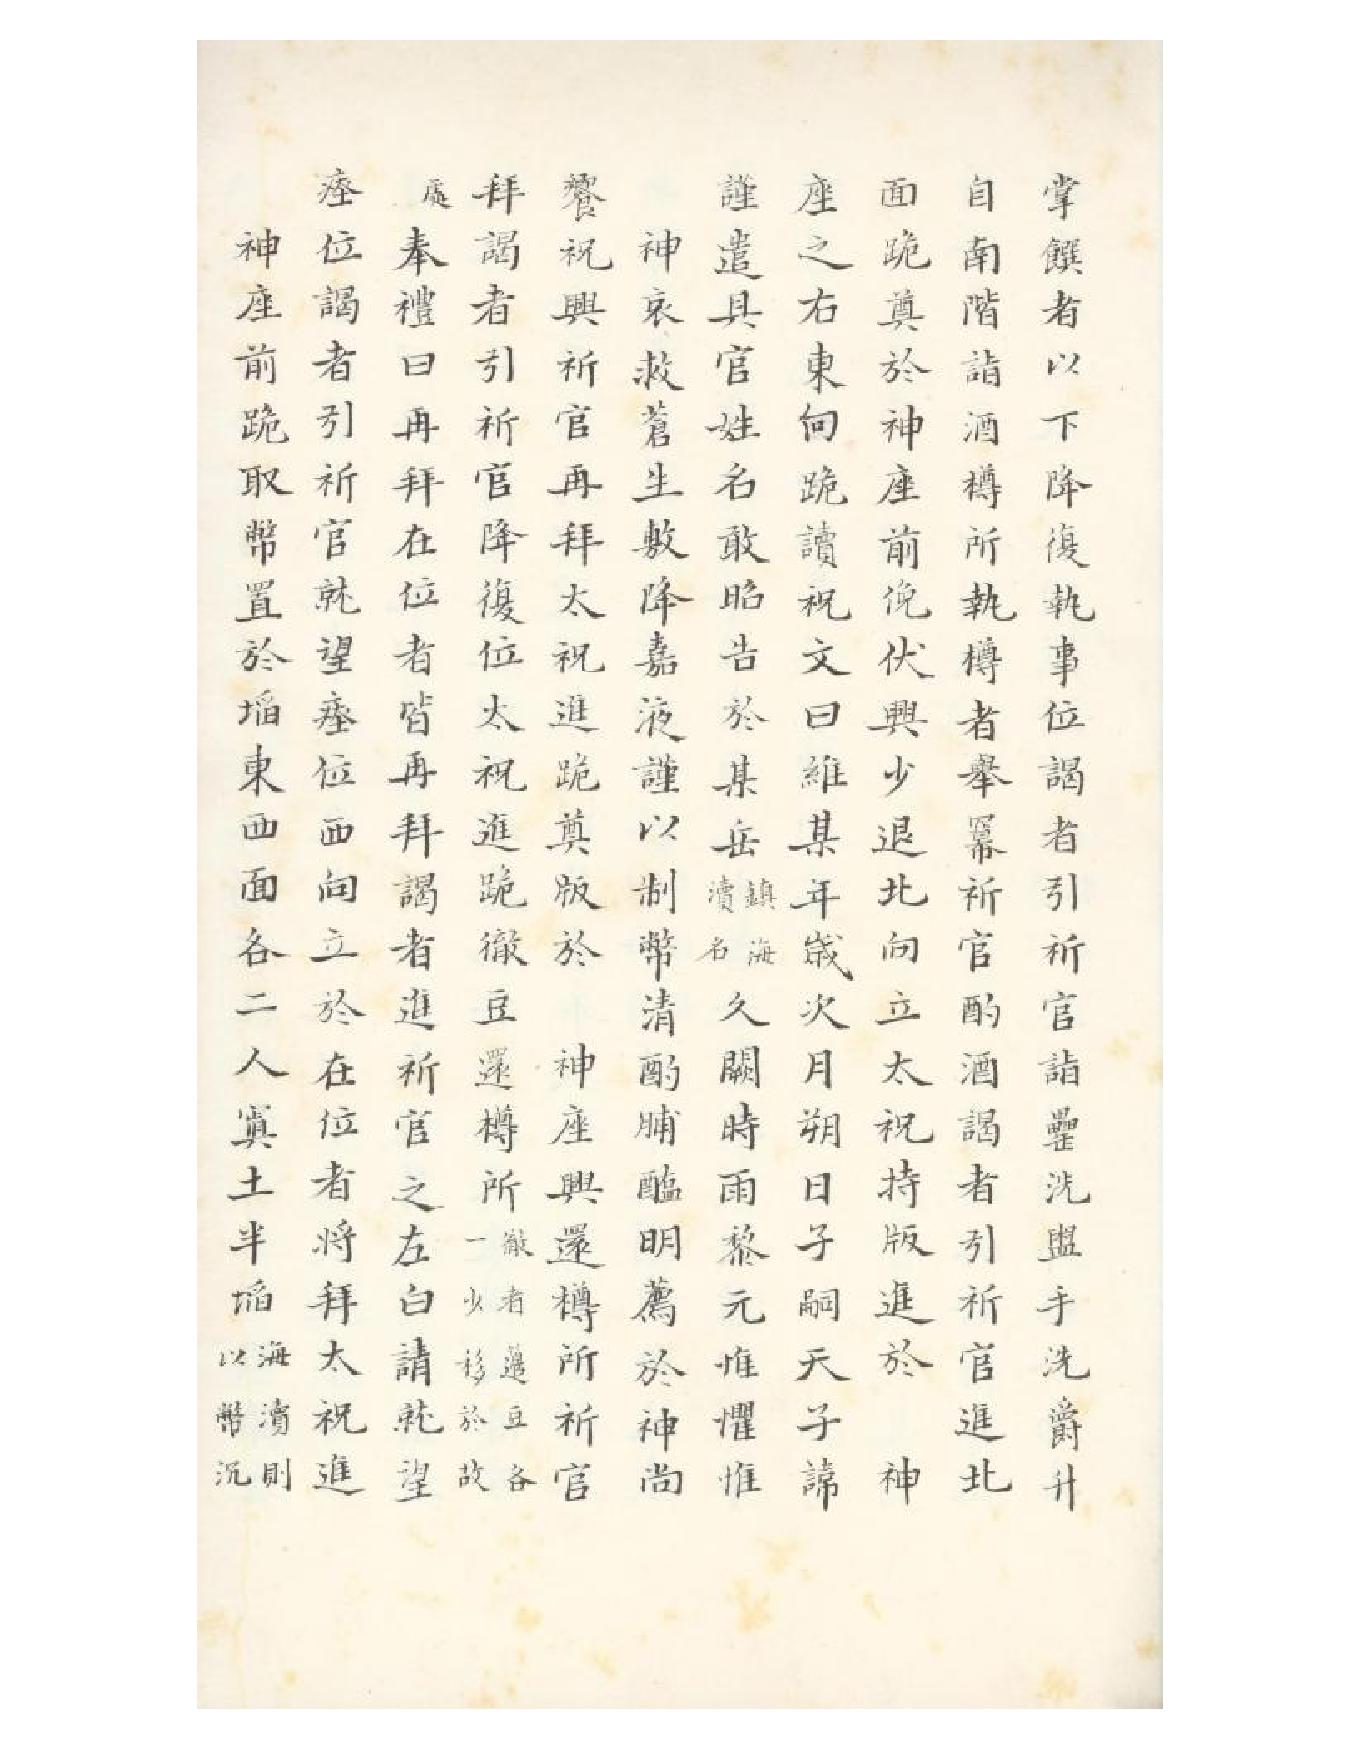 掌饌者以下降復執事位謁者引祈官詣罍洗盥手洗爵升
自南階詣酒樽所執樽者舉冪祈官酌酒謁者引祈官進北
面跪奠於神座前俛伏興少退北向立太祝持版進於　神
座之右東向跪讀祝文曰維某年歲次月朔日子嗣天子諱
謹遣具官姓名敢昭告於某岳鎮海瀆名久闕時雨黎元惟懼惟
神哀救蒼生敷降嘉液謹以制幣清酌脯醢明薦於神尚
饗祝興祈官再拜太祝進跪奠版於　神座興還樽所祈官
拜謁者引祈官降復位太祝進跪徹豆還樽所徹者籩豆各一少移於故
處奉禮曰再拜在位者皆再拜謁者進祈官之左白請就望
瘞位謁者引祈官就望瘞位西向立於在位者將拜太祝進
神座前跪取幣置於埳東西面各二人寘土半埳海瀆則以幣沉